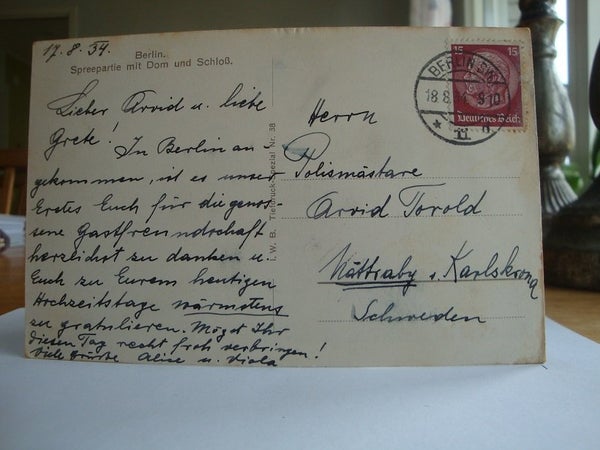 17.8.34.
Berlin.
Spreepartie mit Dom und Schloß.
Lieber Arvid u. liebe
Grete!
In Berlin an-
gekommen, ist es unser
Erstes Euch für die genos-
sene Gastfreundschaft
herzlichst zu danken u.
Euch zu Eurem heutigen
Hochzeitstage wärmstens
zu gratulieren. Mögt Ihr
diesen Tag recht froh verbringen!
Viele Grüße Alice u. Viola
I. W. B. Tiefdruck-Spezial Nr. 38
15 15
Deutsches Reich
BERLIN SW
18.8.34
11
Herrn
Polismästare
Arvid Torold
Nättraby i. Karlskrona
Schweden